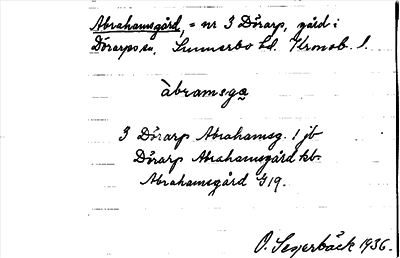 Abrahamsgård, = nr 3 Dörarp, gård i
Dörarps sn, Sunnerbo hd. Kronob. l.
àbramsga
3 Dörarp Abrahamsg. 1 jb
Dörarp Abrahamsgård kb.
Abrahamsgård G19.
O. Segerbäck 1936.